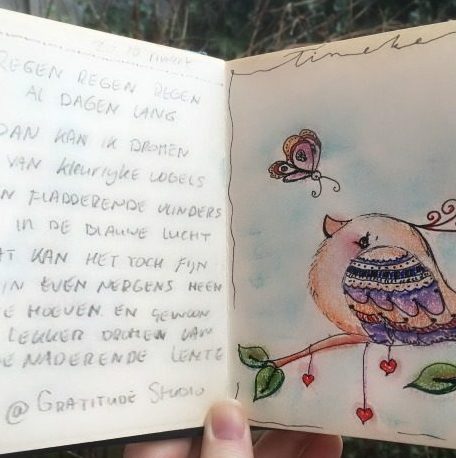 REGEN REGEN REGEN
AL DAGEN LANG
DAN KAN IK DROMEN
VAN KLEURIJKE VOGELS
N FLADDERENDE VLINDERS
IN DE BLAUWE LUCHT
AT KAN HET TOCH FIJN
IN EVEN NERGENS HEEN
TE HOEVEN EN GEWOON
LEKKER DROMEN VAN
DE NADERENDE LENTE
@ GRATITUDE STUDIO
timeke